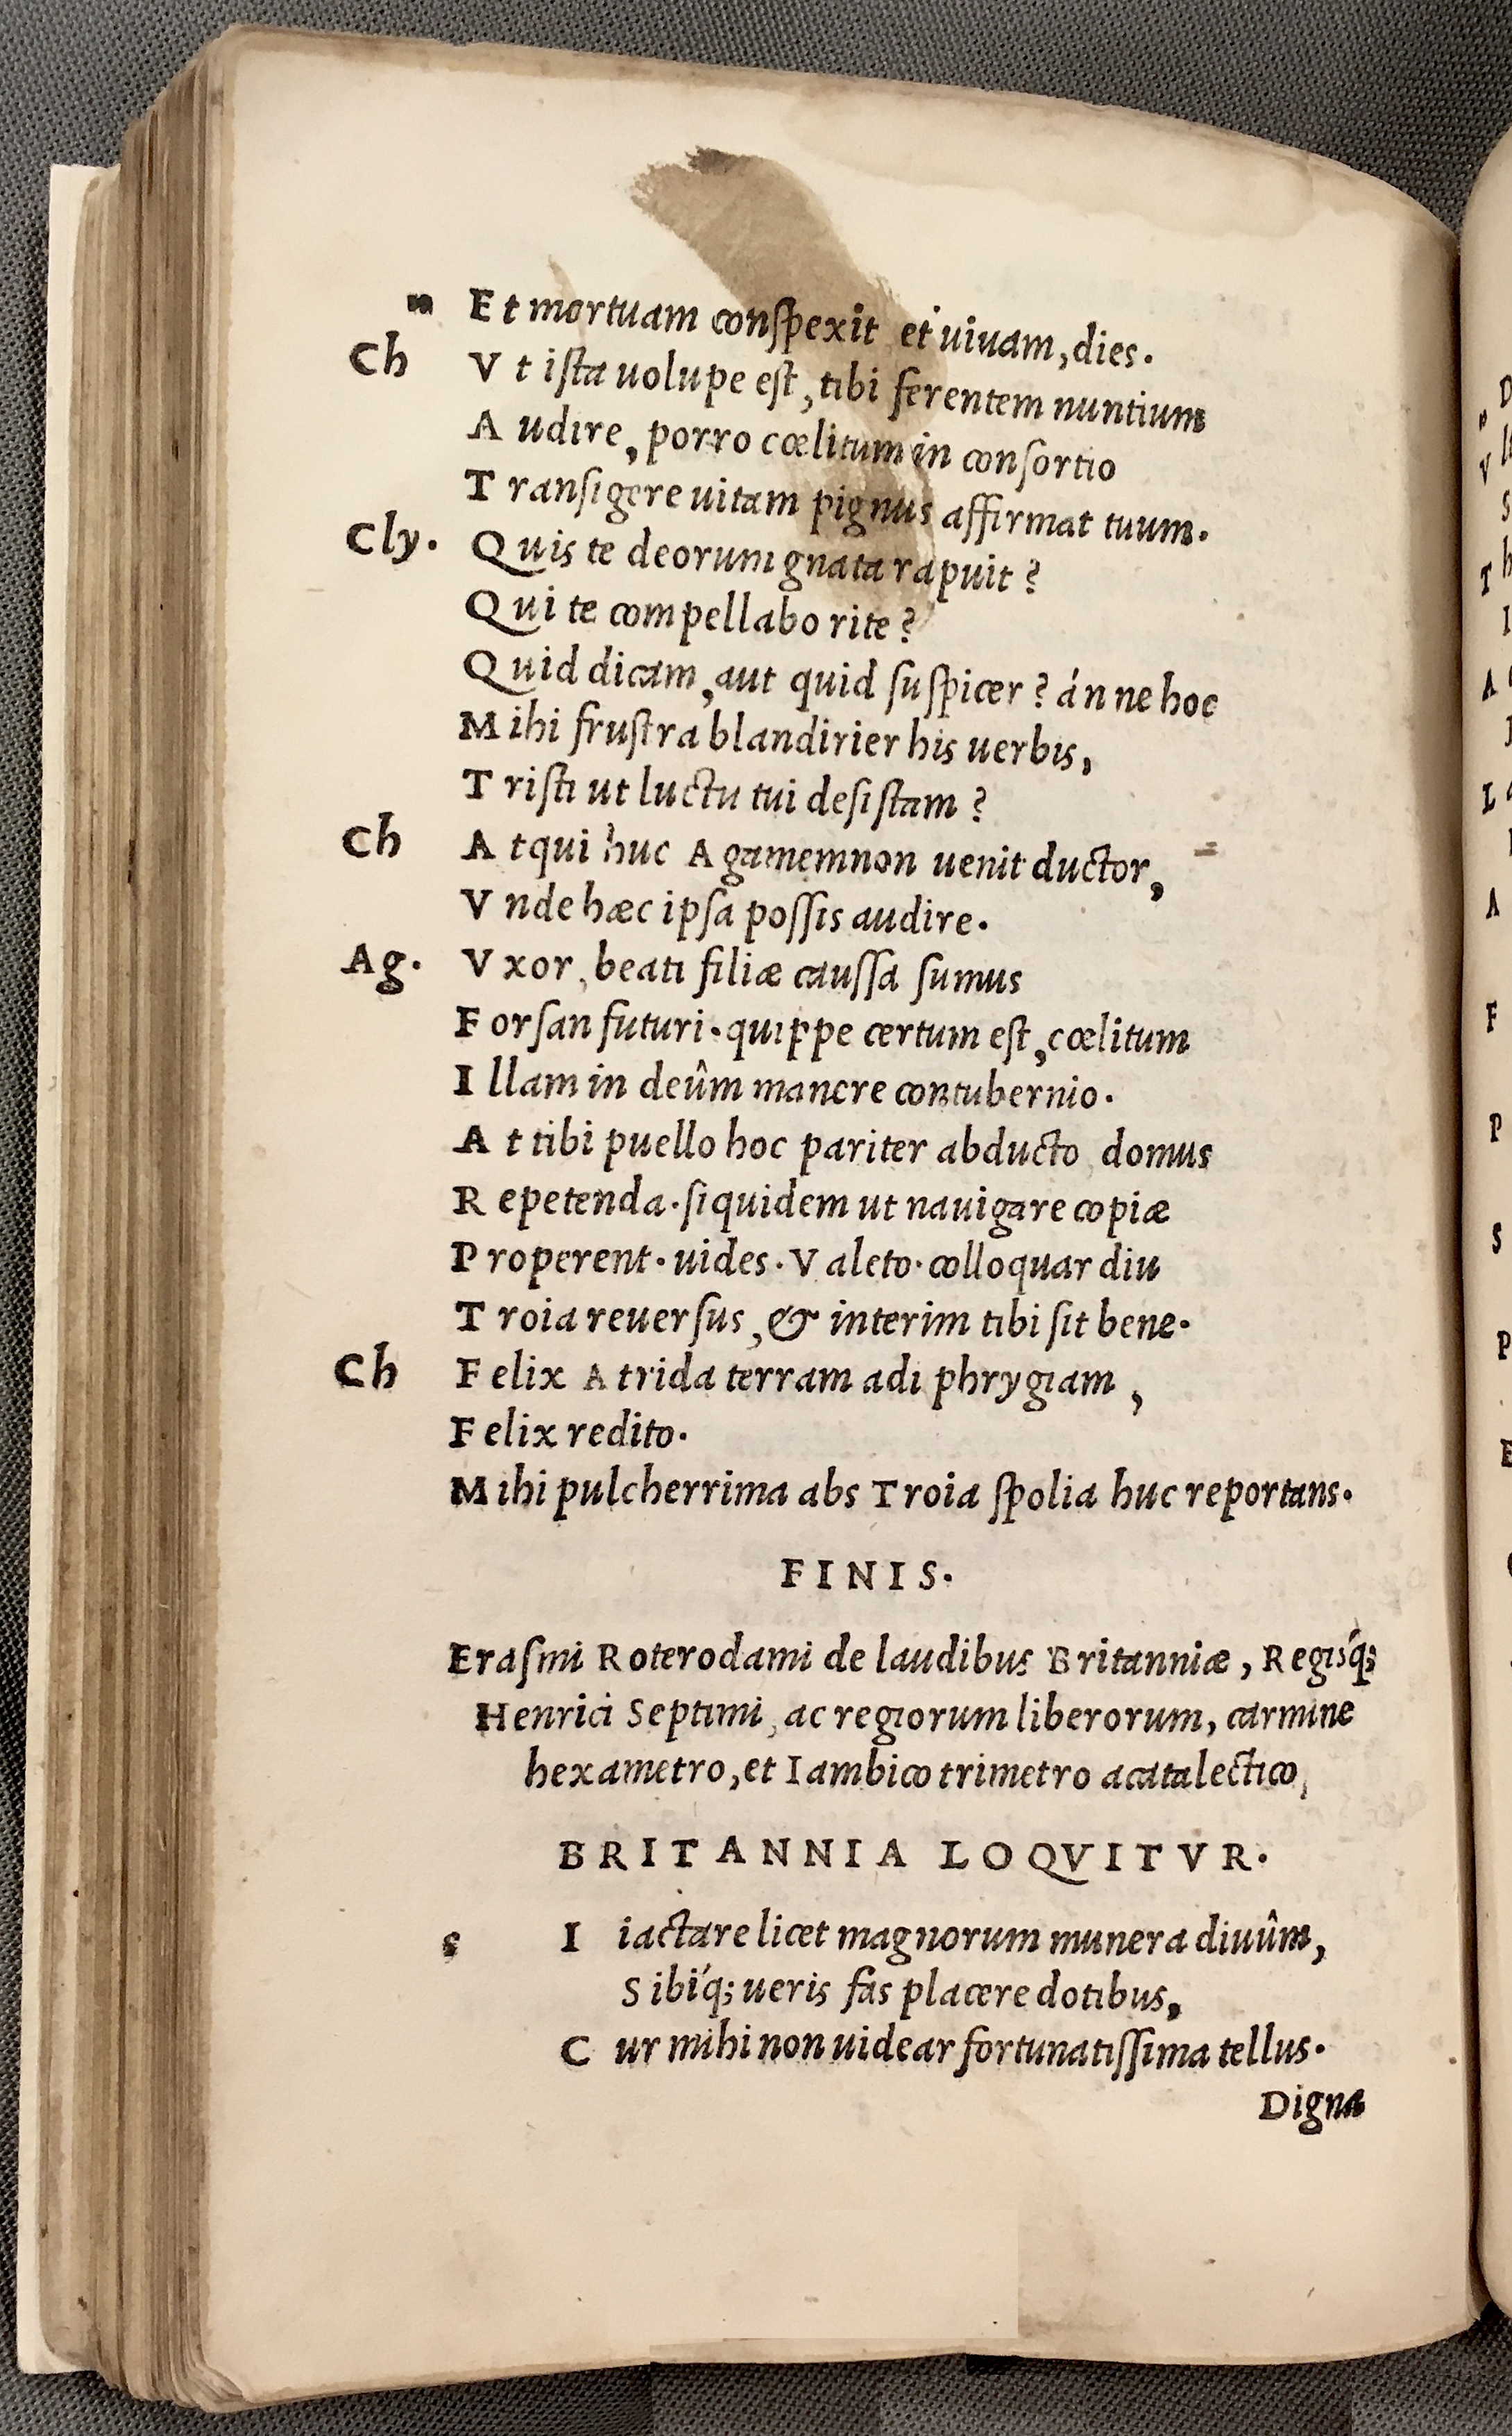 Et mortuam conspexit et uiuam, dies.
Ch Vt ista uolupe est, tibi ferentem nuntium
Audire, porro cœlitum in consortio
Transigere uitam pignus affirmat tuum.
Cly. Quis te deorum gnata rapuit?
Qui te compellabo rite?
Quid dicam, aut quid suspicer? án ne hoc
Mihi frustra blandirier his uerbis,
Tristi ut luctu tui desistam?
Ch Atqui huc Agamemnon uenit ductor,
Vnde hæc ipsa possis audire.
Ag. Vxor, beati filiæ caussa sumus
Forsan futuri. quippe certum est, cœlitum
Illam in deûm manere contubernio.
At tibi puello hoc pariter abducto domus
Repetenda. siquidem ut nauigare copiæ
Properent. uides. Valeto. colloquar diu
Troia reuersus, & interim tibi sit bene.
Ch Felix Atrida terram adi phrygiam,
Felix redito.
Mihi pulcherrima abs Troia spolia huc reportans.
FINIS.
Erasmi Roterodami de laudibus Britanniæ, Regisq́;
Henrici Septimi, ac regiorum liberorum, carmine
hexametro, et Iambico trimetro acatalectico,
BRITANNIA LOQVITVR.
s I iactare licet magnorum munera diuûm,
Sibiq́; ueris fas placere dotibus,
Cur mihi non uidear fortunatissima tellus.
Digna